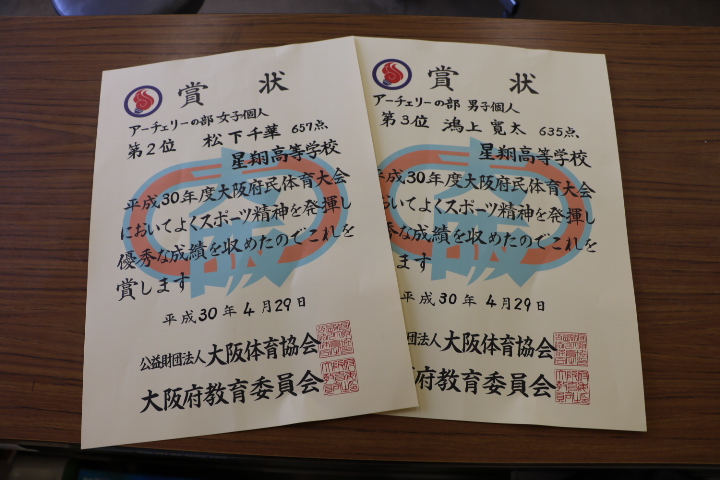 賞状
アーチェリーの部 女子個人
第2位 松下千華 657点
星翔高等学校
平成30年度大阪府民体育大会
においてよくスポーツ精神を発揮し
優秀な成績を収めたのでこれを
賞します
平成30年4月29日
公益財団法人大阪体育協会
大阪府教育委員会
賞状
アーチェリーの部 男子個人
第3位 鴻上寛太 635点
星翔高等学校
平成30年度大阪府民体育大会
おいてよくスポーツ精神を発揮し
秀な成績を収めたのでこれを
ます
平成30年4月29日
団法人大阪体育協会
阪府教育委員会